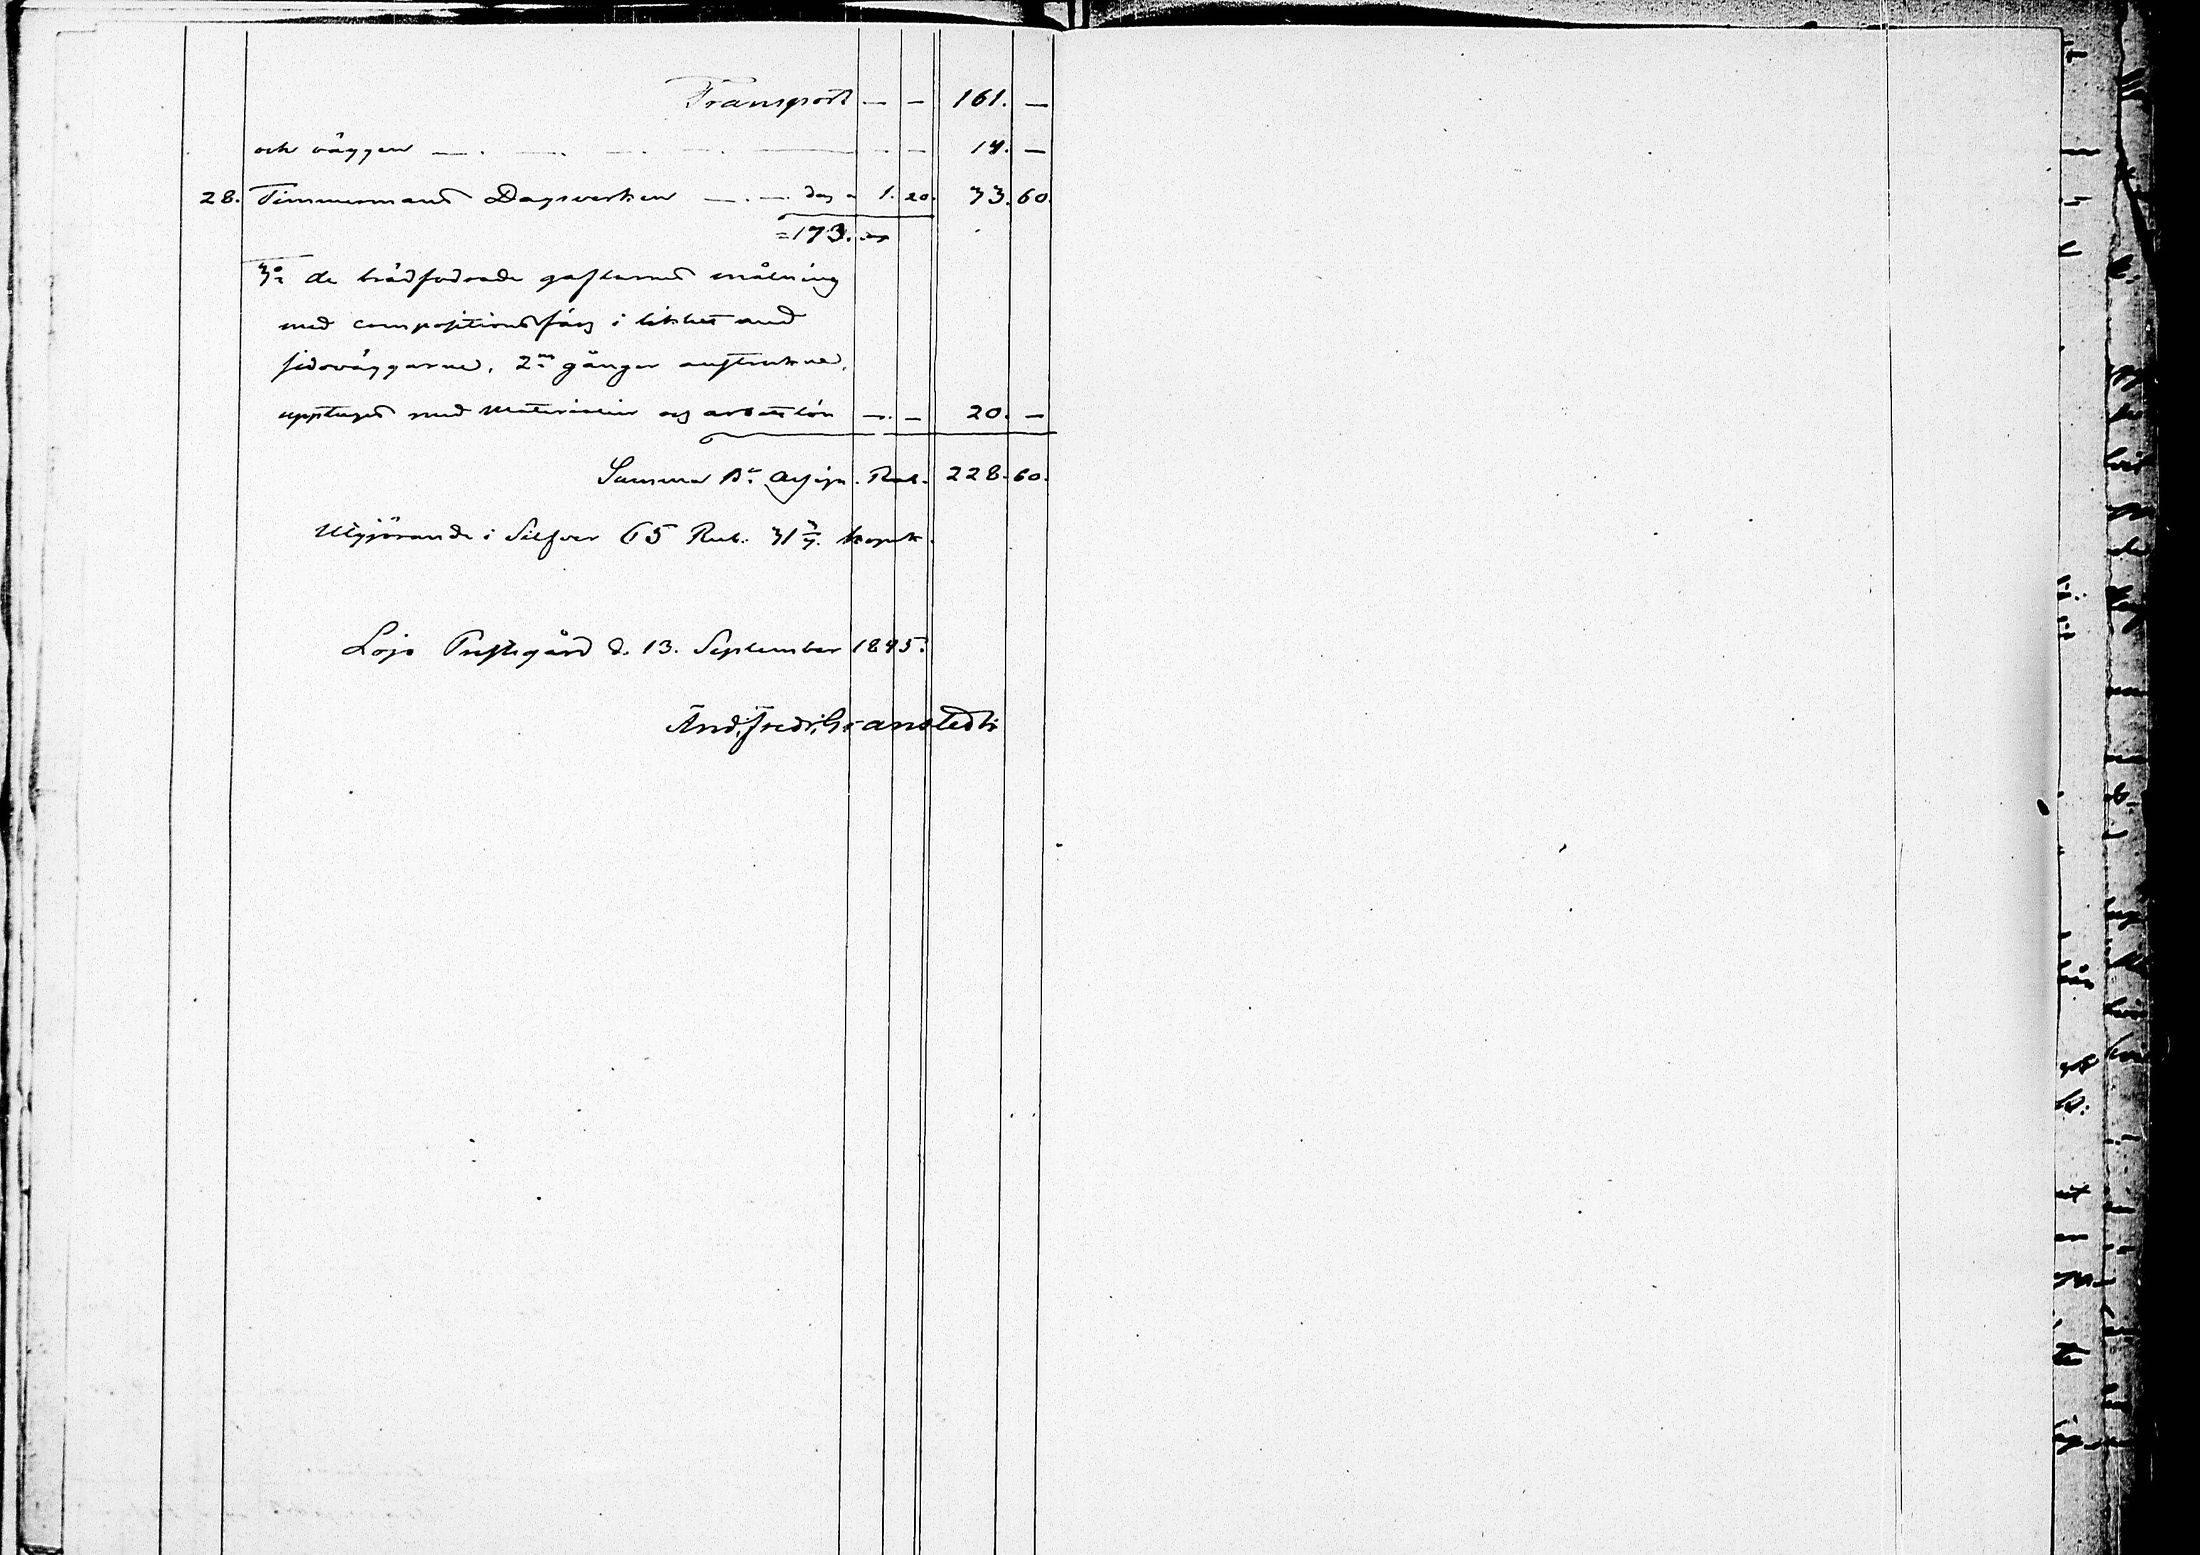 Transport — — 161. —
och väggen — . — . — . — . — — — 14. —
28. Timmermans Dagsverken — . — . dag a 1. 20. 33. 60.
= 173.
3o de brädfodrade gaflarnes målning
med compositionsfärg i likhet med
sidoväggarne, 2ne gånger anstrukne,
upptages med Materialier og arbetslön — . — 20. —
Summa Bco Assign. Rub. 228. 60.
Utgjörande i Silfver 65 Rub. 31 3/7. kopek.
Lojo Prestgård d. 13. September 1845.
And. Fredr. Granstedt